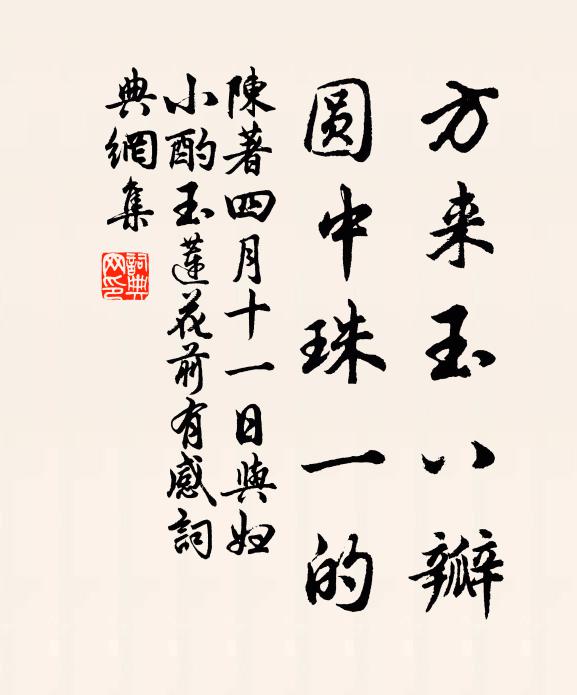 方来玉八瓣
圆中珠一的
陳著四月十一日與妇
小酌玉蓮花前有感詞
典網集
詞典网印